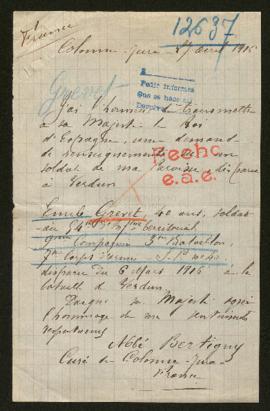 France
12637
Colonne Jura 27 avril 1916
Grevet
Pedir informes
J'ai l'honneur de transmettre
à sa Majesté le Roi
d'Espagne, une demande
de renseignements
soldat de ma Paroisse disparu
à Verdun
Hecho
e.a.e.
Emile Grevet 40 ans, soldat
au 54e Territorial
Compagnie 3me Bataillon
7e Corps d'armée
disparu du 6 Mars 1916 à la
bataille de Verdun.
Daigne sa Majesté
l'hommage de ma
respectueuse
Abbé Bertigny
Curé de Colonne Jura
France